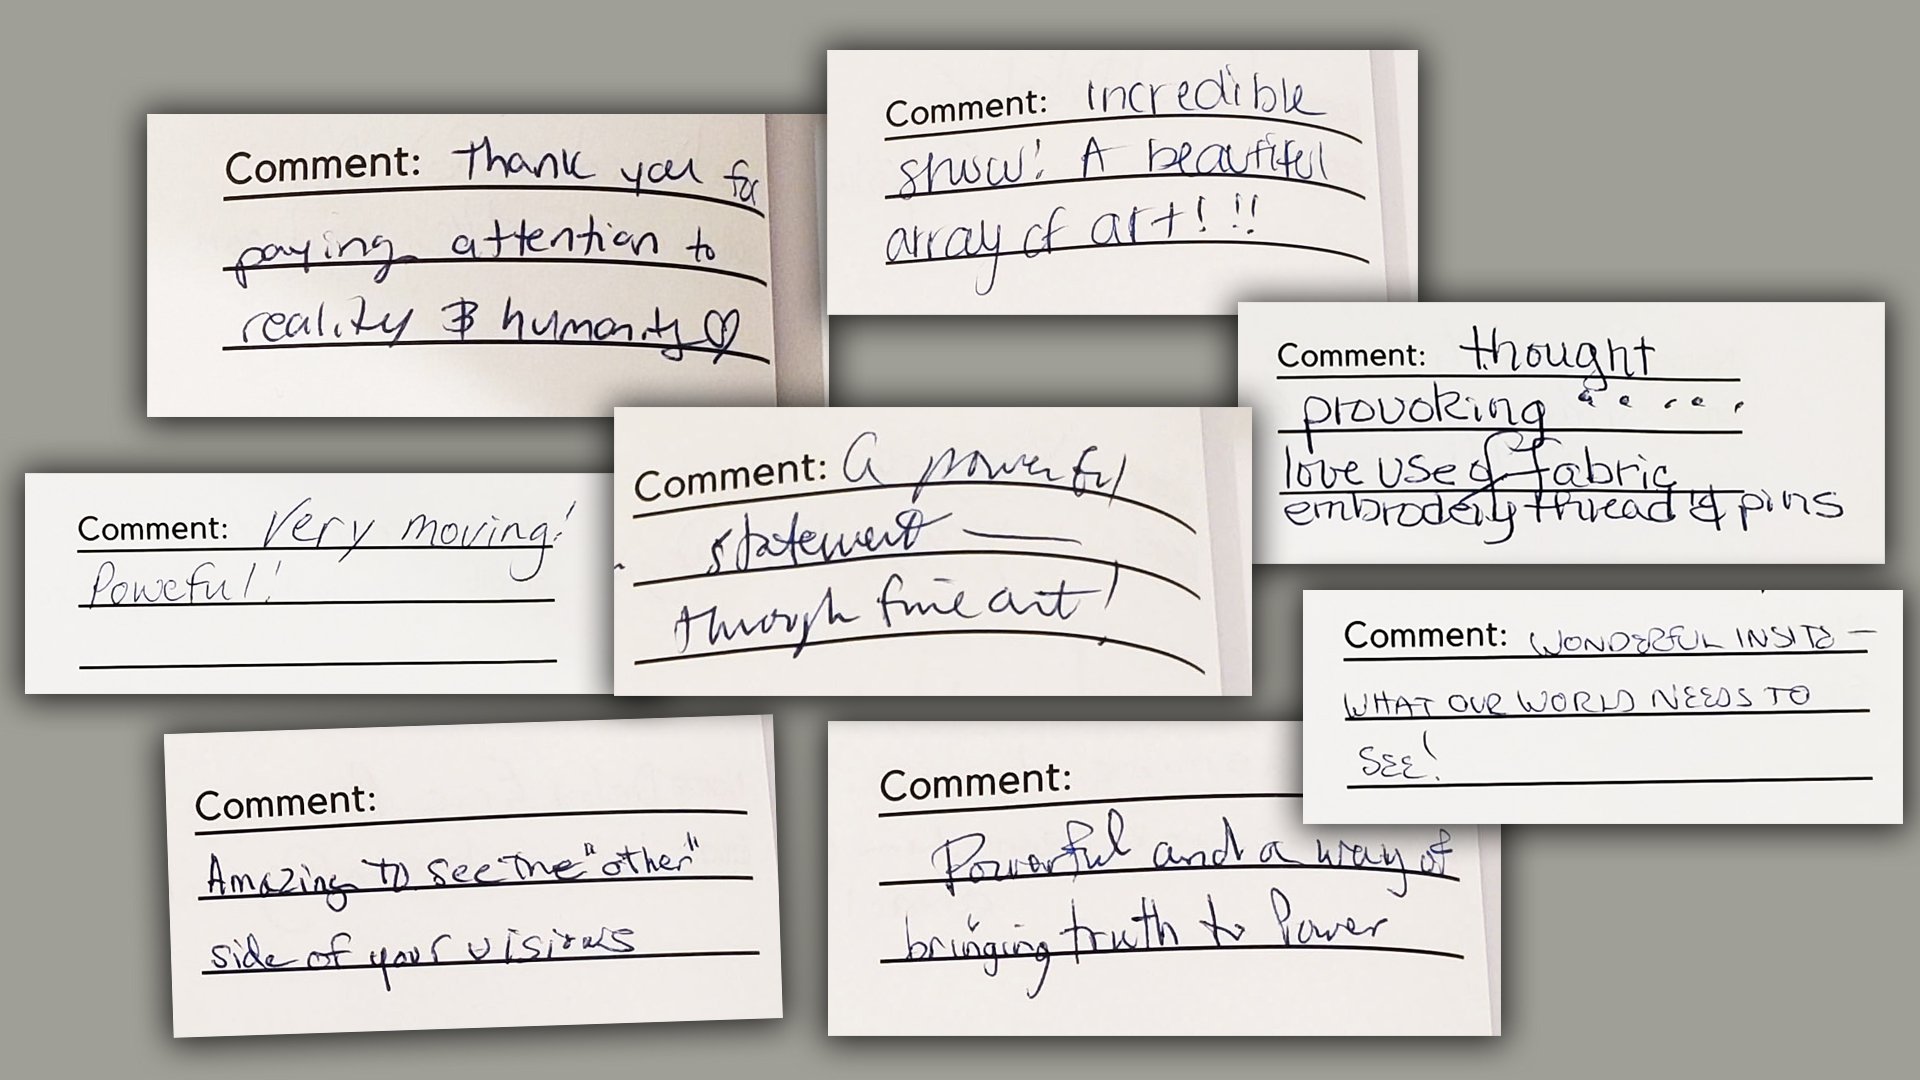 Comment: Thank you for
paying attention to
reality & humanity ♡
Comment: Incredible
show! A beautiful
array of art! !!
Comment: thought
provoking .....
love use of fabric
embrodery thread & pins
Comment: Very moving!
Poweful!
Comment: A powerful
statement —
through fine art!
Comment: WONDERFUL INSITE —
WHAT OUR WORLD NEEDS TO
SEE!
Comment:
Amazing to see the "other"
side of your visions
Comment:
Powerful and a way of
bringing truth to Power